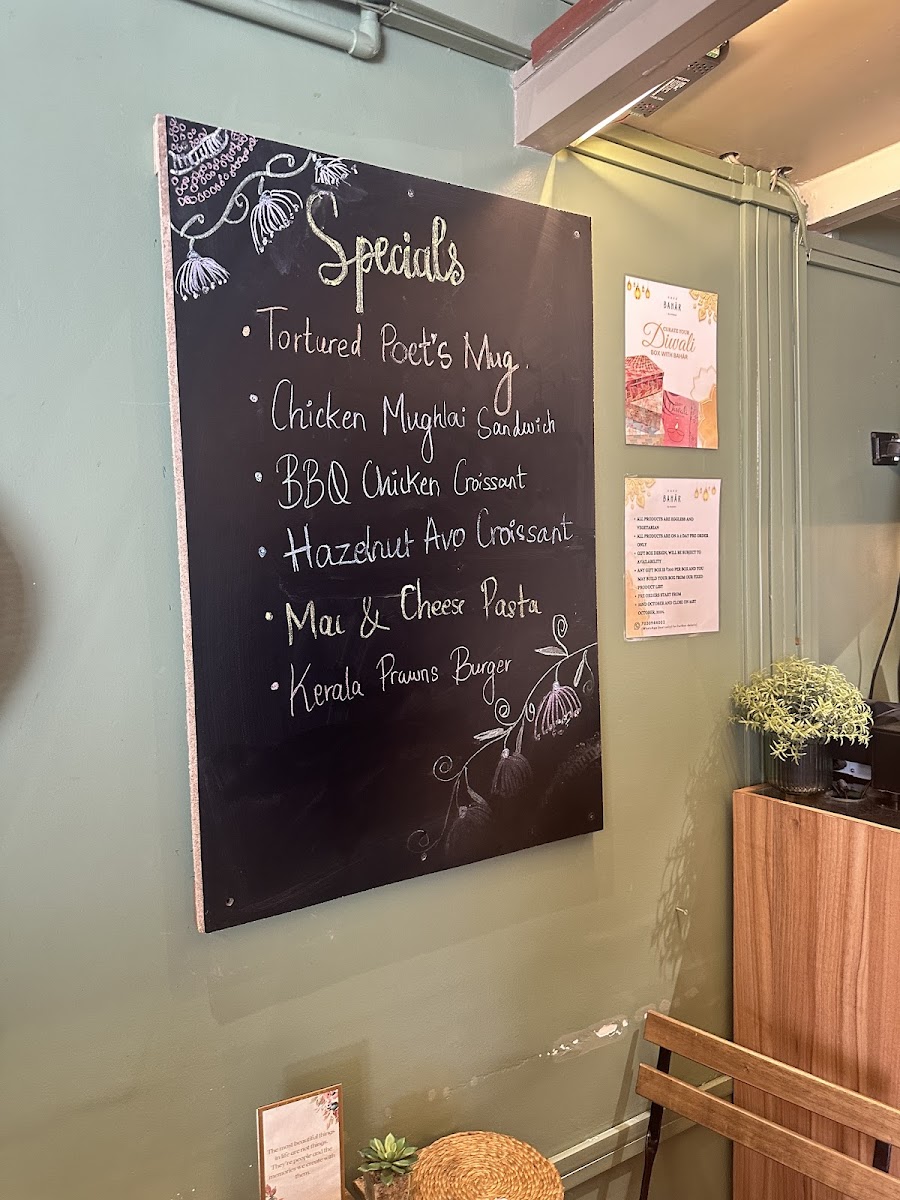 Specials
• Tortured Poet's Mug.
• Chicken Mughlai Sandwich
• BBQ Chicken Croissant
• Hazelnut Avo Croissant
• Mac & Cheese Pasta
• Kerala Prawns Burger
BAHĀR
CURATE YOUR
Diwali
BOX WITH BAHĀR
BAHĀR
• ALL PRODUCTS ARE EGGLESS AND
VEGETARIAN
• ALL PRODUCTS ARE ON A 4 DAY PRE ORDER
ONLY
• GIFT BOX DESIGN, WILL BE SUBJECT TO
AVAILABILITY
MAY BUILD YOUR BOX FROM OUR FIXED
PRODUCT LIST
• PRE ORDERS START FROM
The most beautiful things
in life are not things.
They're people and the
memories we create with
them.